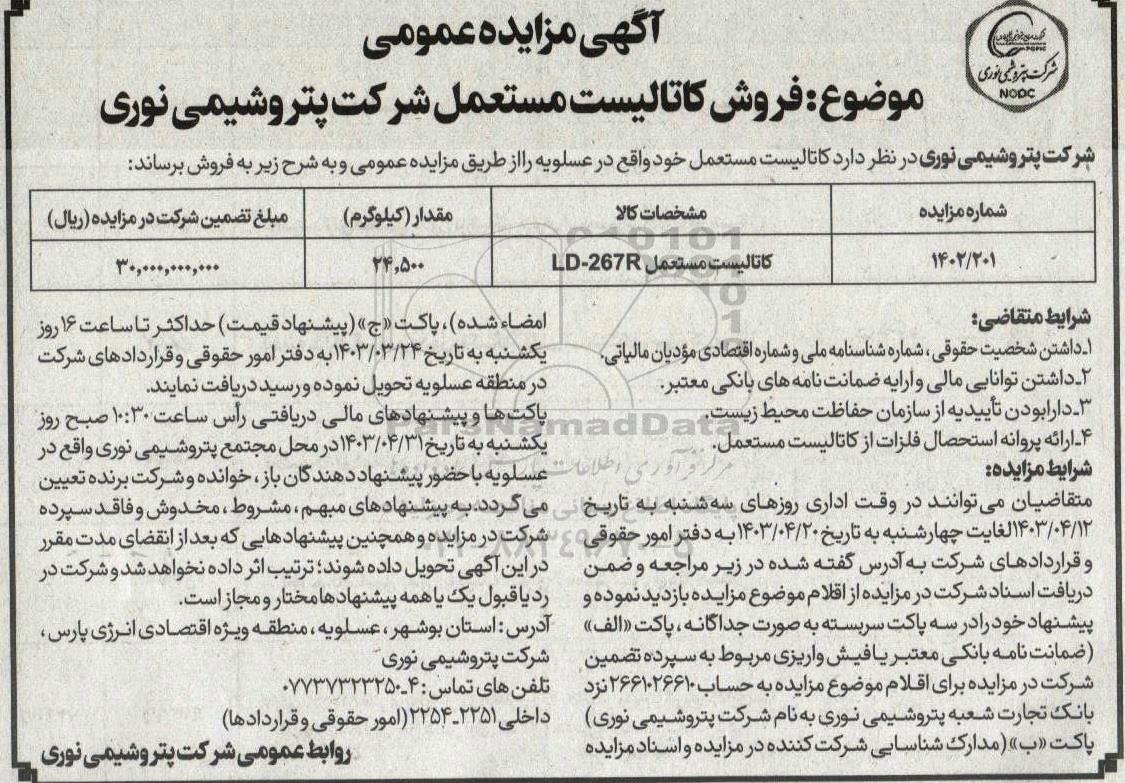 آگهی مزایده عمومی
موضوع: فروش کاتالیست مستعمل شرکت پتروشیمی نوری
شرکت پتروشیمی نوری
NOPC
شرکت پتروشیمی نوری در نظر دارد کاتالیست مستعمل خود واقع در عسلویه را از طریق مزایده عمومی و به شرح زیر به فروش برساند:
شماره مزایده | مشخصات کالا | مقدار (کیلوگرم) | مبلغ تضمین شرکت در مزایده (ریال)
۱۴۰۲/۲۰۱ | کاتالیست مستعمل LD-267R | ۲۴,۵۰۰ | ۳۰,۰۰۰,۰۰۰,۰۰۰
شرایط متقاضی:
۱ـ داشتن شخصیت حقوقی، شماره شناسنامه ملی و شماره اقتصادی مؤدیان مالیاتی.
۲ـ داشتن توانایی مالی و ارایه ضمانت نامه های بانکی معتبر.
۳ـ دارا بودن تأییدیه از سازمان حفاظت محیط زیست.
۴ـ ارائه پروانه استحصال فلزات از کاتالیست مستعمل.
شرایط مزایده:
متقاضیان می توانند در وقت اداری روزهای سه شنبه به تاریخ
۱۴۰۳/۰۴/۱۲ لغایت چهارشنبه به تاریخ ۱۴۰۳/۰۴/۲۰ به دفتر امور حقوقی
و قراردادهای شرکت به آدرس گفته شده در زیر مراجعه و ضمن
دریافت اسناد شرکت در مزایده از اقلام موضوع مزایده بازدید نموده و
پیشنهاد خود را در سه پاکت سربسته به صورت جداگانه، پاکت «الف»
(ضمانت نامه بانکی معتبر یا فیش واریزی مربوط به سپرده تضمین
شرکت در مزایده برای اقلام موضوع مزایده به حساب ۲۶۶۱۰۲۶۶۱۰ نزد
بانک تجارت شعبه پتروشیمی نوری به نام شرکت پتروشیمی نوری)
پاکت «ب» (مدارک شناسایی شرکت کننده در مزایده و اسناد مزایده
امضاء شده)، پاکت «ج» (پیشنهاد قیمت) حداکثر تا ساعت ۱۶ روز
یکشنبه به تاریخ ۱۴۰۳/۰۳/۲۴ به دفتر امور حقوقی و قراردادهای شرکت
در منطقه عسلویه تحویل نموده و رسید دریافت نمایند.
پاکت ها و پیشنهادهای مالی دریافتی رأس ساعت ۱۰:۳۰ صبح روز
یکشنبه به تاریخ ۱۴۰۳/۰۴/۳۱ در محل مجتمع پتروشیمی نوری واقع در
عسلویه با حضور پیشنهاد دهندگان باز، خوانده و شرکت برنده تعیین
می گردد. به پیشنهادهای مبهم، مشروط، مخدوش و فاقد سپرده
شرکت در مزایده و همچنین پیشنهادهایی که بعد از انقضای مدت مقرر
در این آگهی تحویل داده شوند؛ ترتیب اثر داده نخواهد شد و شرکت در
رد یا قبول یک یا همه پیشنهادها مختار و مجاز است.
آدرس: استان بوشهر، عسلویه، منطقه ویژه اقتصادی انرژی پارس،
شرکت پتروشیمی نوری
تلفن های تماس: ۴ـ۰۷۷۳۷۳۲۳۲۵۰
داخلی ۲۲۵۱ـ۲۲۵۴ (امور حقوقی و قراردادها)
روابط عمومی شرکت پتروشیمی نوری
ParsNamadData